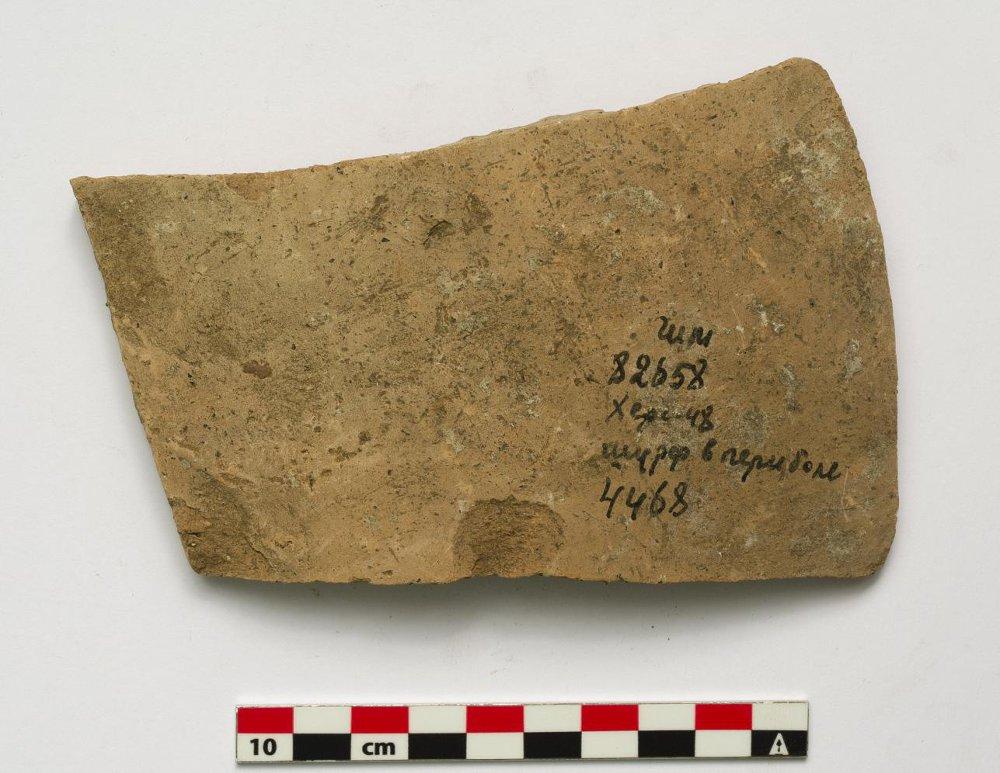 ГИМ
82658
Херс-48
шурф в периболе
4468
10 cm